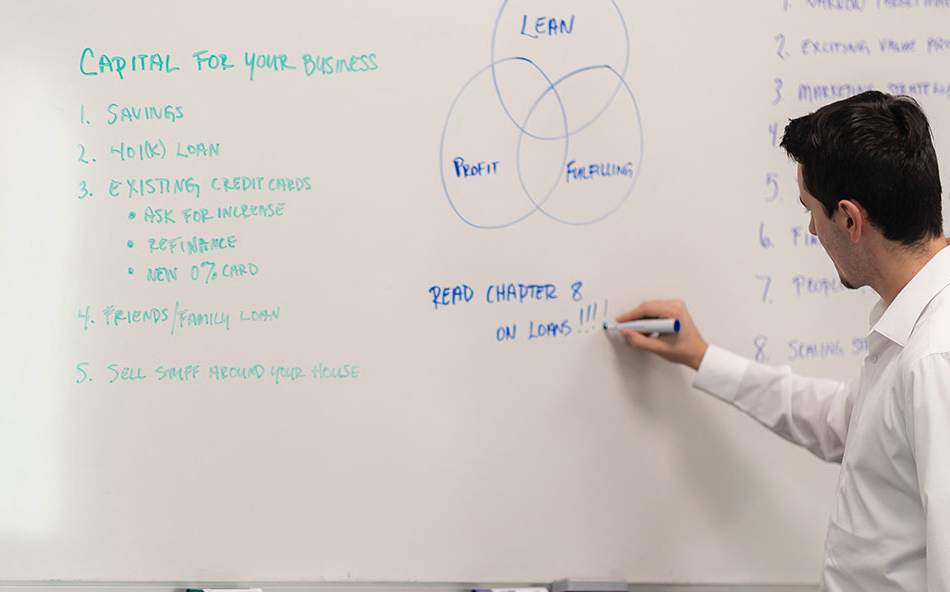 CAPITAL FOR YOUR BUSINESS
1. SAVINGS
2. 401(K) LOAN
3. EXISTING CREDIT CARDS
• ASK FOR INCREASE
• REFINANCE
• NEW 0% CARD
4. FRIENDS/FAMILY LOAN
5. SELL STUFF AROUND YOUR HOUSE
LEAN
PROFIT
FULFILLING
READ CHAPTER 8
ON LOANS !!!!
1. NARROW
2. EXCITING VALUE
3. MARKETING
4.
5.
6.
7.
8. SCALING